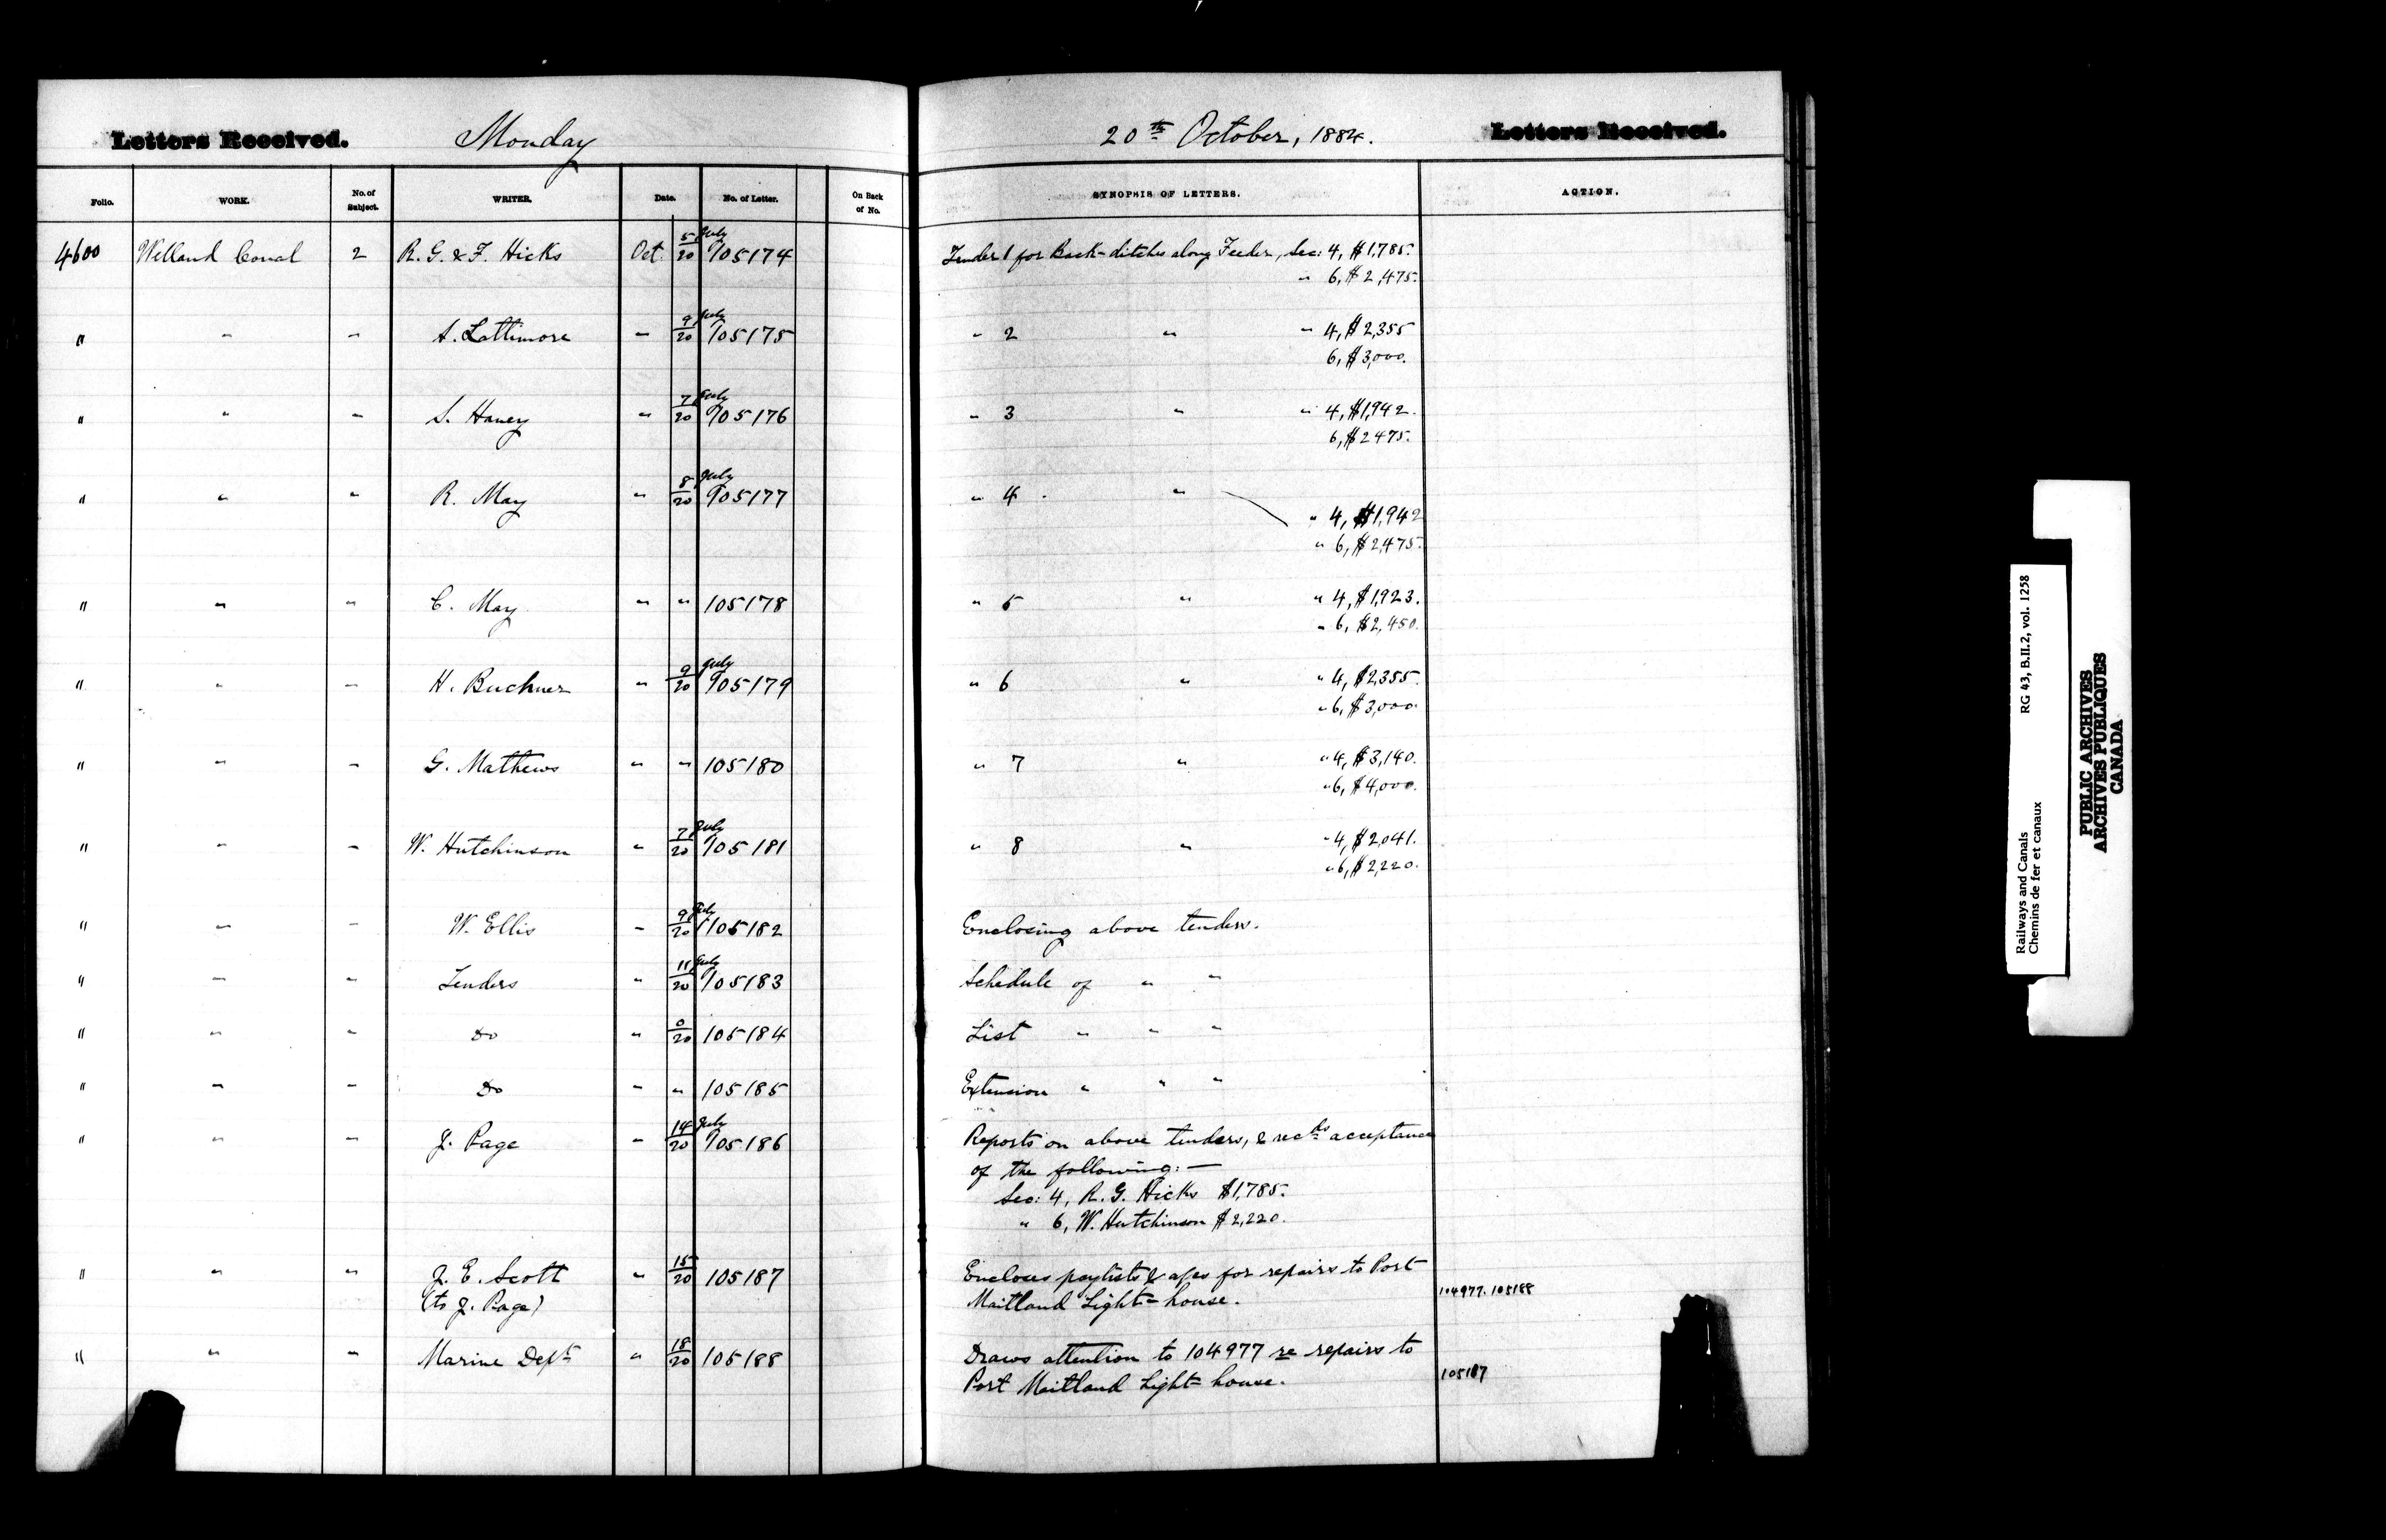 Letters Received. Monday 20th October, 1884. Letters Received.
Folio. WORK. No. of Subject. WRITER. Date. No. of Letter. On Back of No. SYNOPSIS OF LETTERS. ACTION.
4600 Welland Canal 2 R. G. & F. Hicks Oct. 5/20 July 105174 Tender 1 for Back-ditches along Feeder, Sec: 4, $1,785.
" 6, $2,475.
" " " A. Lattimore " 9/20 July 105175 " 2 " " 4, $2,355
6, $3,000.
" " " S. Haney " 7/20 July 105176 " 3 " " 4, $1,942.
6, $2475.
" " " R. May " 8/20 July 105177 " 4 "
" 4, $1,942
" 6, $2,475.
" " " C. May " " 105178 " 5 " " 4, $1,923.
" 6, $2,450.
" " " H. Buchner " 9/20 July 105179 " 6 " " 4, $2,355.
" 6, $3,000.
" " " G. Mathews " " 105180 " 7 " " 4, $3,140.
" 6, $4,000.
" " " W. Hutchinson " 7/20 July 105181 " 8 " " 4, $2,041.
" 6, $2,220.
" " " W. Ellis " 9/20 July 105182 Enclosing above tenders.
" " " Tenders " 11/20 July 105183 Schedule of " "
" " " Do " 0/20 105184 List " " "
" " " Do " " 105185 Extension " " "
" " " J. Page " 14/20 July 105186 Reports on above tenders, & recds acceptance
of the following:—
Sec: 4, R. G. Hicks $1,785.
" 6, W. Hutchinson $2,220.
" " " J. E. Scott " 15/20 105187 Encloses paylists & a/cs for repairs to Port
(to J. Page) Maitland Light-house. 104977. 105188
" " " Marine Dept " 18/20 105188 Draws attention to 104977 re repairs to
Port Maitland Light-house. 105187
Railways and Canals RG 43, B.II.2, vol. 1258
Chemins de fer et canaux
PUBLIC ARCHIVES
ARCHIVES PUBLIQUES
CANADA